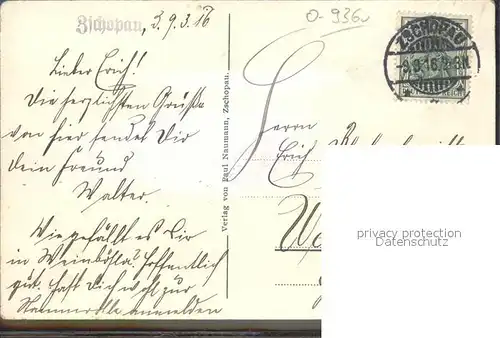 Zschopau, d. 9.3.16
0-936
Lieber Erich!
Die herzlichsten Grüße
von hier sendet Dir
dein Freund
Walter.
Wie gefällt es Dir
in Weinböhla? Hoffentlich
gut. Hast Dich wohl zur
anmelden
Verlag von Paul Naumann, Zschopau.
ZSCHOPAU
Herrn
Erich
privacy protection
Datenschutz